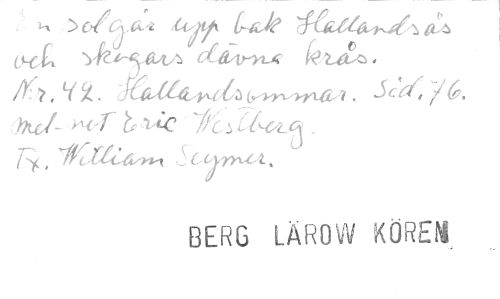 En sol går upp bak Hallandsås
och skogars dävna krås.
Nr. 42. Hallandsommar. Sid. 76.
mel-not Eric Westberg.
Tx. William Seymer.
BERG LÄROW KÖREN